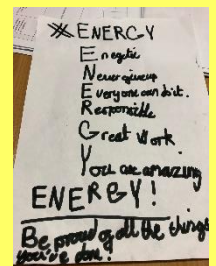 ENERGY
Energetic
Never give up
Everyone can do it.
Responsible
Great Work
You are amazing
ENERGY!
Be proud of all the things
you've done!